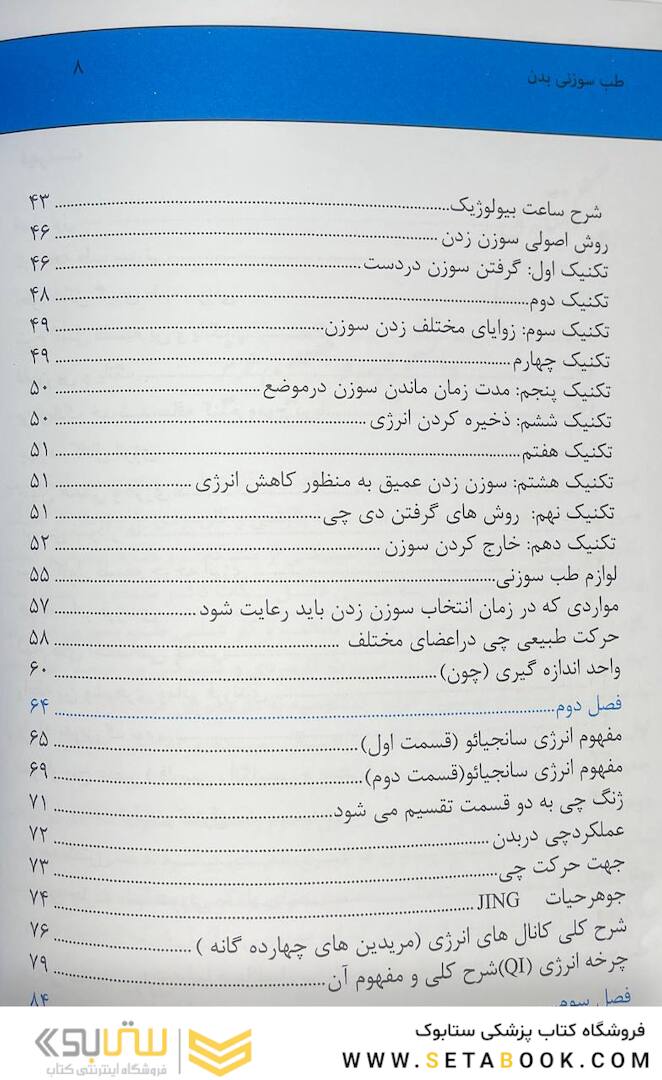 طب سوزنی بدن ۸
شرح ساعت بیولوژیک ۴۳
روش اصولی سوزن زدن ۴۶
تکنیک اول: گرفتن سوزن دردست ۴۶
تکنیک دوم ۴۸
تکنیک سوم: زوایای مختلف زدن سوزن ۴۹
تکنیک چهارم ۴۹
تکنیک پنجم: مدت زمان ماندن سوزن درموضع ۵۰
تکنیک ششم: ذخیره کردن انرژی ۵۰
تکنیک هفتم ۵۱
تکنیک هشتم: سوزن زدن عمیق به منظور کاهش انرژی ۵۱
تکنیک نهم: روش های گرفتن دی چی ۵۱
تکنیک دهم: خارج کردن سوزن ۵۲
لوازم طب سوزنی ۵۵
مواردی که در زمان انتخاب سوزن زدن باید رعایت شود ۵۷
حرکت طبیعی چی دراعضای مختلف ۵۸
واحد اندازه گیری (چون) ۶۰
فصل دوم ۶۴
مفهوم انرژی سانجیائو (قسمت اول) ۶۵
مفهوم انرژی سانجیائو(قسمت دوم) ۶۹
ژنگ چی به دو قسمت تقسیم می شود ۷۱
عملکردچی دربدن ۷۲
جهت حرکت چی ۷۳
جوهرحیات JING ۷۴
شرح کلی کانال های انرژی (مریدین های چهارده گانه ) ۷۶
چرخه انرژی (QI)شرح کلی و مفهوم آن ۷۹
فصل سوم ۸۴
فروشگاه کتاب پزشکی ستابوک
WWW.SETABOOK.COM
ستابوک
فروشگاه اینترنتی کتاب